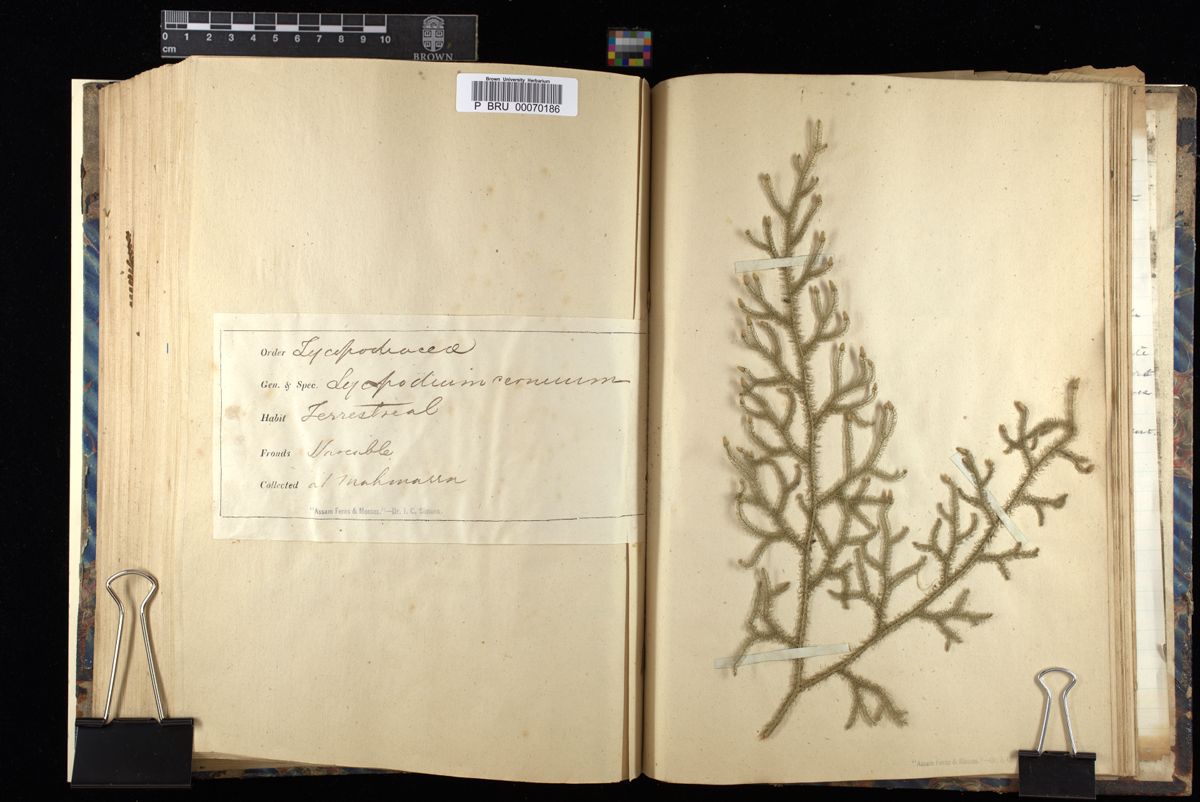 0 1 2 3 4 5 6 7 8 9 10
cm
BROWN
Brown University Herbarium
P BRU 00070186
Order Lycopodiaceæ
Gen. & Spec. Lycopodium cernuum
Habit Terrestreal
Fronds Variable
Collected at Mahmarra
"Assam Ferns & Mosses."—Dr. J. C. Simons.
"Assam Ferns & Mosses."—Dr.